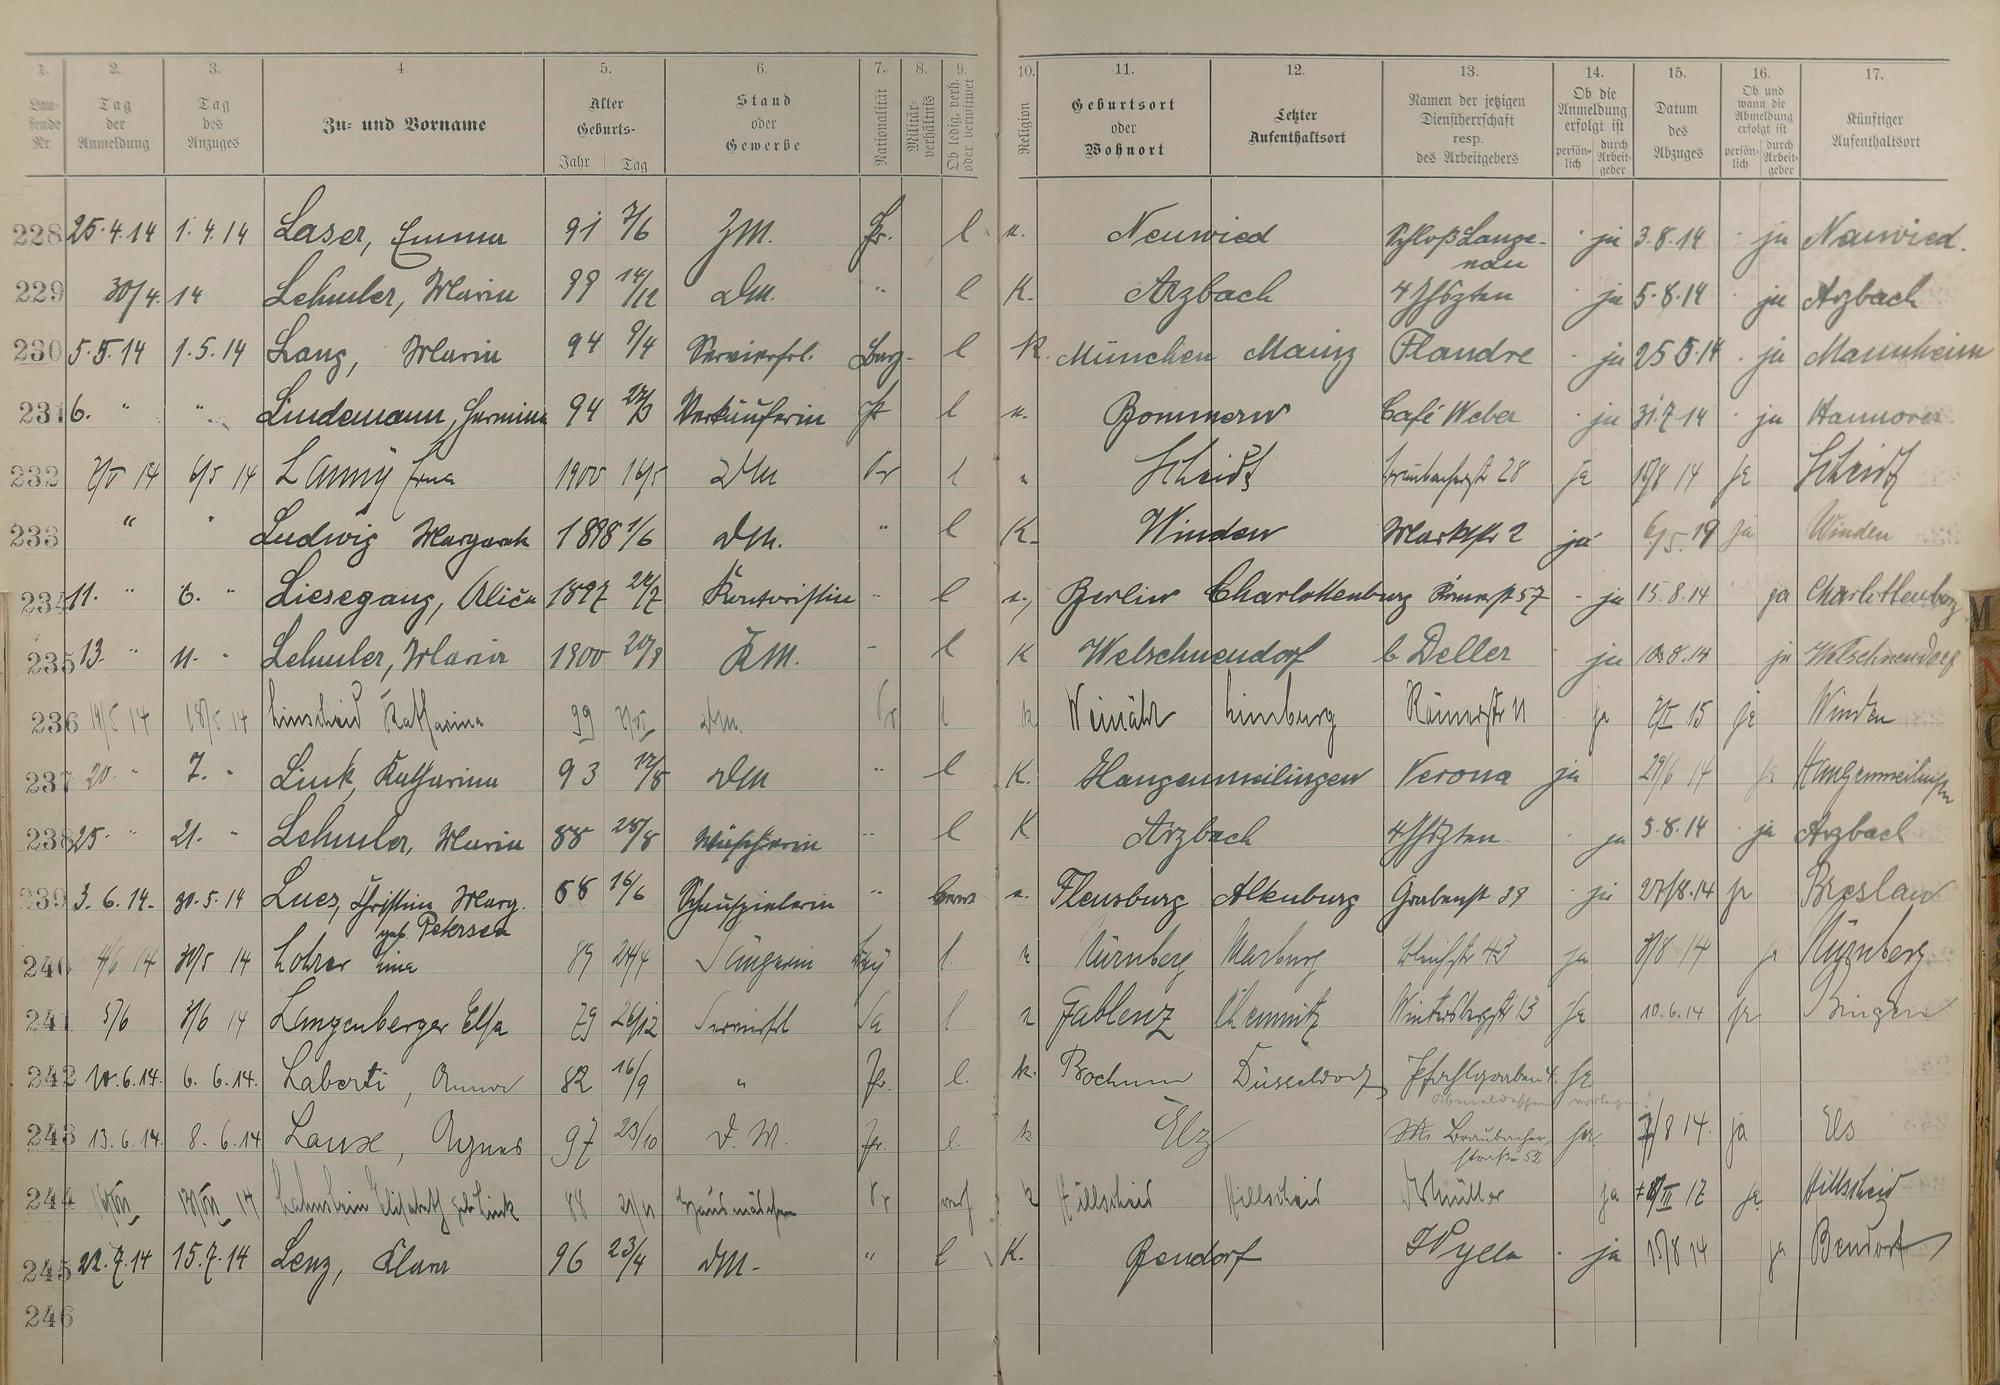 1. 2. 3. 4. 5. 6. 7. 8. 9. 10. 11. 12. 13. 14. 15. 16. 17.
Lau-fende Nr. Tag der Anmeldung Tag des Anzuges Zu- und Vorname Alter Geburts- Jahr Tag Stand oder Gewerbe Nationalität Militär-verhältnis Ob ledig, verh. oder verwitwet Religion Geburtsort oder Wohnort Letzter Aufenthaltsort Namen der jetzigen Dienstherrschaft resp. des Arbeitgebers Ob die Anmeldung erfolgt ist persön-lich durch Arbeit-geber Datum des Abzuges Ob und wann die Abmeldung erfolgt ist persön-lich durch Arbeit-geber Künftiger Aufenthaltsort
228 25.4.14 1.4.14 Laser, Emma 91 7/6 ZM. Pr. l Neuwied Schloß Lange-nau ja 3.8.14 ja Neuwied.
229 30/4. 14 Lehmler, Maria 99 14/12 DM. " l K. Arzbach ja 5.8.14 ja Arzbach
230 5.5.14 1.5.14 Lang, Maria 94 9/4 Servierfrl. l K. München Mainz Flandre ja 25.5.14 ja Mannheim
231 6. " " Lindemann, Hermine 94 27/3 Verkäuferin l Pommern Café Weber ja 31.7.14 ja Hannover
232 14 6/5 14 Erna 1900 16/5 DM Pr l Scheidt 28 ja 14 ja Scheidt
233 " " Ludwig Margareth 1898 1/6 DM. " l K. Winden Marktstr 2 ja 6/5.19 ja Winden
234 11. " 6. " Liesegang, Alice 1897 Kontoristin " l Berlin Charlottenburg Römerst 57 ja 15.8.14 ja Charlottenburg
235 13. " 11. " Lehmler, Maria 1900 20/8 KM. " l K Welschneudorf b Deller ja 10.8.14 ja Welschneudorf
236 19/5 14 18/5 14 Linscheid Katharina 99 DM. Pr l k Weinähr Limburg Römerstr 11 ja 15 ja Winden
237 20. " 7. " Link, Katharina 93 12/8 DM " l K. Hangenmeilingen Verona ja 29/6 14 ja Hangenmeilingen
238 25. " 21. " Lehmler, Maria 88 28/8 " l K Arzbach ja 5.8.14 ja Arzbach
239 3.6.14. 30.5.14 Lues, Christine Marg. 88 16/6 Schauspielerin " Flensburg Altenburg Grabenst 39 ja 27/8.14 ja Breslau
geb. Petersen
240 4/6 14 30/5 14 Lohrer Lina 89 24/4 Sängerin Bay l Nürnberg Marburg 43 ja 14 ja Nürnberg
241 5/6 3/6 14 Langenberger Elsa 79 26/12 Servierfrl Sa l Gablenz Chemnitz Wintersbergstr 13 ja 10.6.14 ja Bingen
242 10.6.14. 6.6.14. Laberti, Anna 82 16/9 " Pr. l. k. Bochum Düsseldorf Pfahlgraben 4. ja
243 13.6.14. 8.6.14 Laux, Agnes 97 23/10 D. M. Pr. l. k Elz Braubacher-straße 52 ja 7/8 14. ja Els
244 14 Lahnstein Elisabeth geb Link 88 21/11 Hausmädchen Pr k Hillscheid Hillscheid Müller ja 17 ja Hillscheid
245 22.7.14 15.7.14 Lenz, Klara 96 23/4 DM. " l K. Bendorf ja 15/8 14 ja Bendorf
246